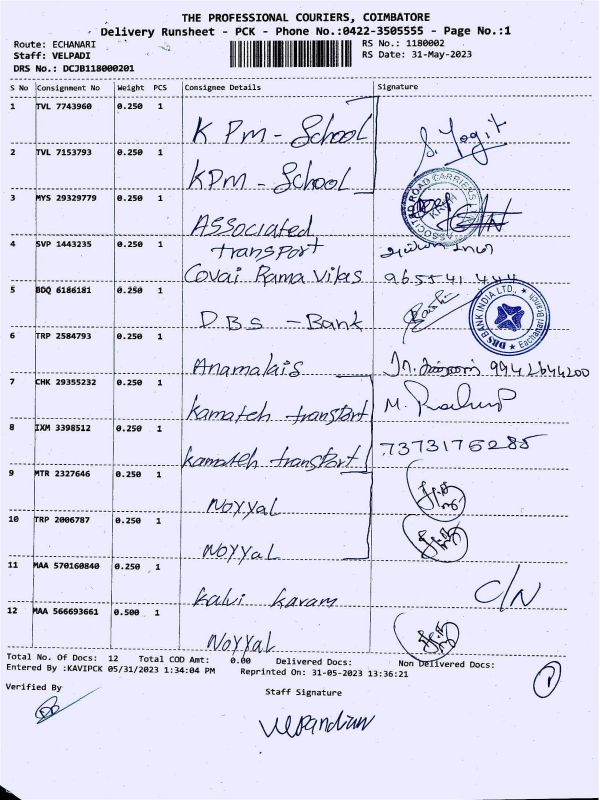 THE PROFESSIONAL COURIERS, COIMBATORE
Delivery Runsheet - PCK - Phone No.:0422-3505555 - Page No.:1
Route: ECHANARI RS No.: 1180002
Staff: VELPADI RS Date: 31-May-2023
DRS No.: DCJB118000201
S No Consignment No Weight PCS Consignee Details Signature
1 TVL 7743960 0.250 1 KPm - School S. Yogit
2 TVL 7153793 0.250 1 KPM - School
3 MYS 29329779 0.250 1 ASSociated transport C/N
ASSOCIATED ROAD CARRIERS
4 SVP 1443235 0.250 1 Covai Rama Vilas 96554 1444
5 BDQ 6186181 0.250 1 DBS - Bank
DBS BANK INDIA LTD., Eachanari Branch
6 TRP 2584793 0.250 1 Anamalais 9942644200
7 CHK 29355232 0.250 1 kamateh transport M.
8 IXM 3398512 0.250 1 kamateh transport 7373176285
9 MTR 2327646 0.250 1 Noyyal
10 TRP 2006787 0.250 1 Noyyal
11 MAA 570160840 0.250 1 kalvi karam C/N
12 MAA 566693661 0.500 1 Noyyal
Total No. Of Docs: 12 Total COD Amt: 0.00 Delivered Docs: Non Delivered Docs:
Entered By :KAVIPCK 05/31/2023 1:34:04 PM Reprinted On: 31-05-2023 13:36:21
Verified By Staff Signature
Velpandian